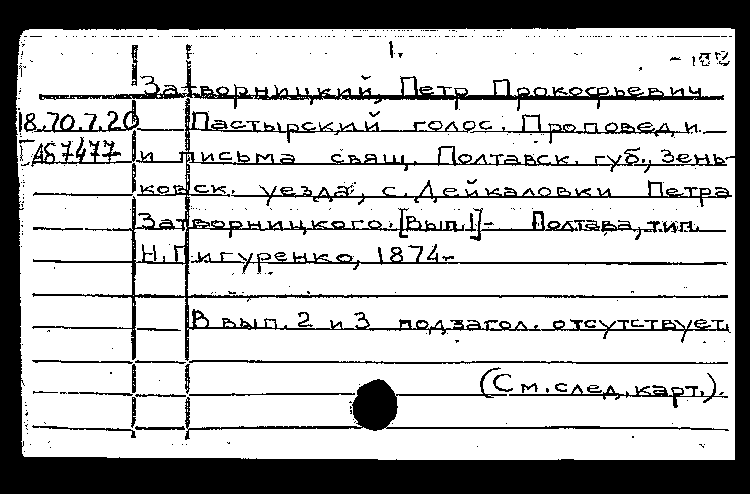 1.
Затворницкий, Петр Прокофьевич
18.70.7.20 Пастырский голос. Проповеди
A87477 и письма свящ. Полтавск. губ., Зень-
ковск. уезда, с. Дейкаловки Петра
Затворницкого. [Вып.1]- Полтава, тип.
Н. Пигуренко, 1874-
В вып. 2 и 3 подзагол. отсутствует.
(См. след. карт.).